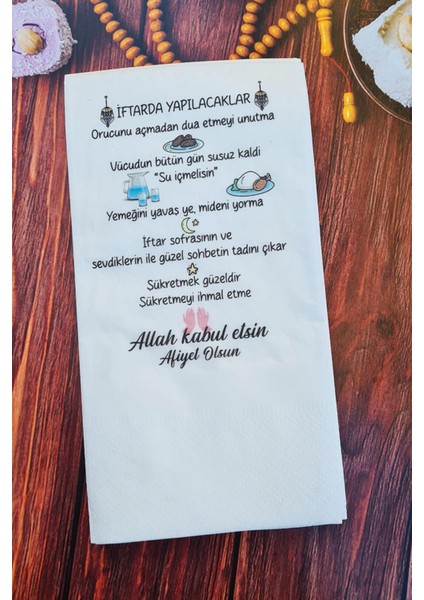 İFTARDA YAPILACAKLAR
Orucunu açmadan dua etmeyi unutma
Vücudun bütün gün susuz kaldi
"Su içmelisin"
Yemeğini yavaş ye, mideni yorma
İftar sofrasının ve
sevdiklerin ile güzel sohbetin tadını çıkar
Şükretmek güzeldir
Şükretmeyi ihmal etme
Allah kabul etsin
Afiyet Olsun